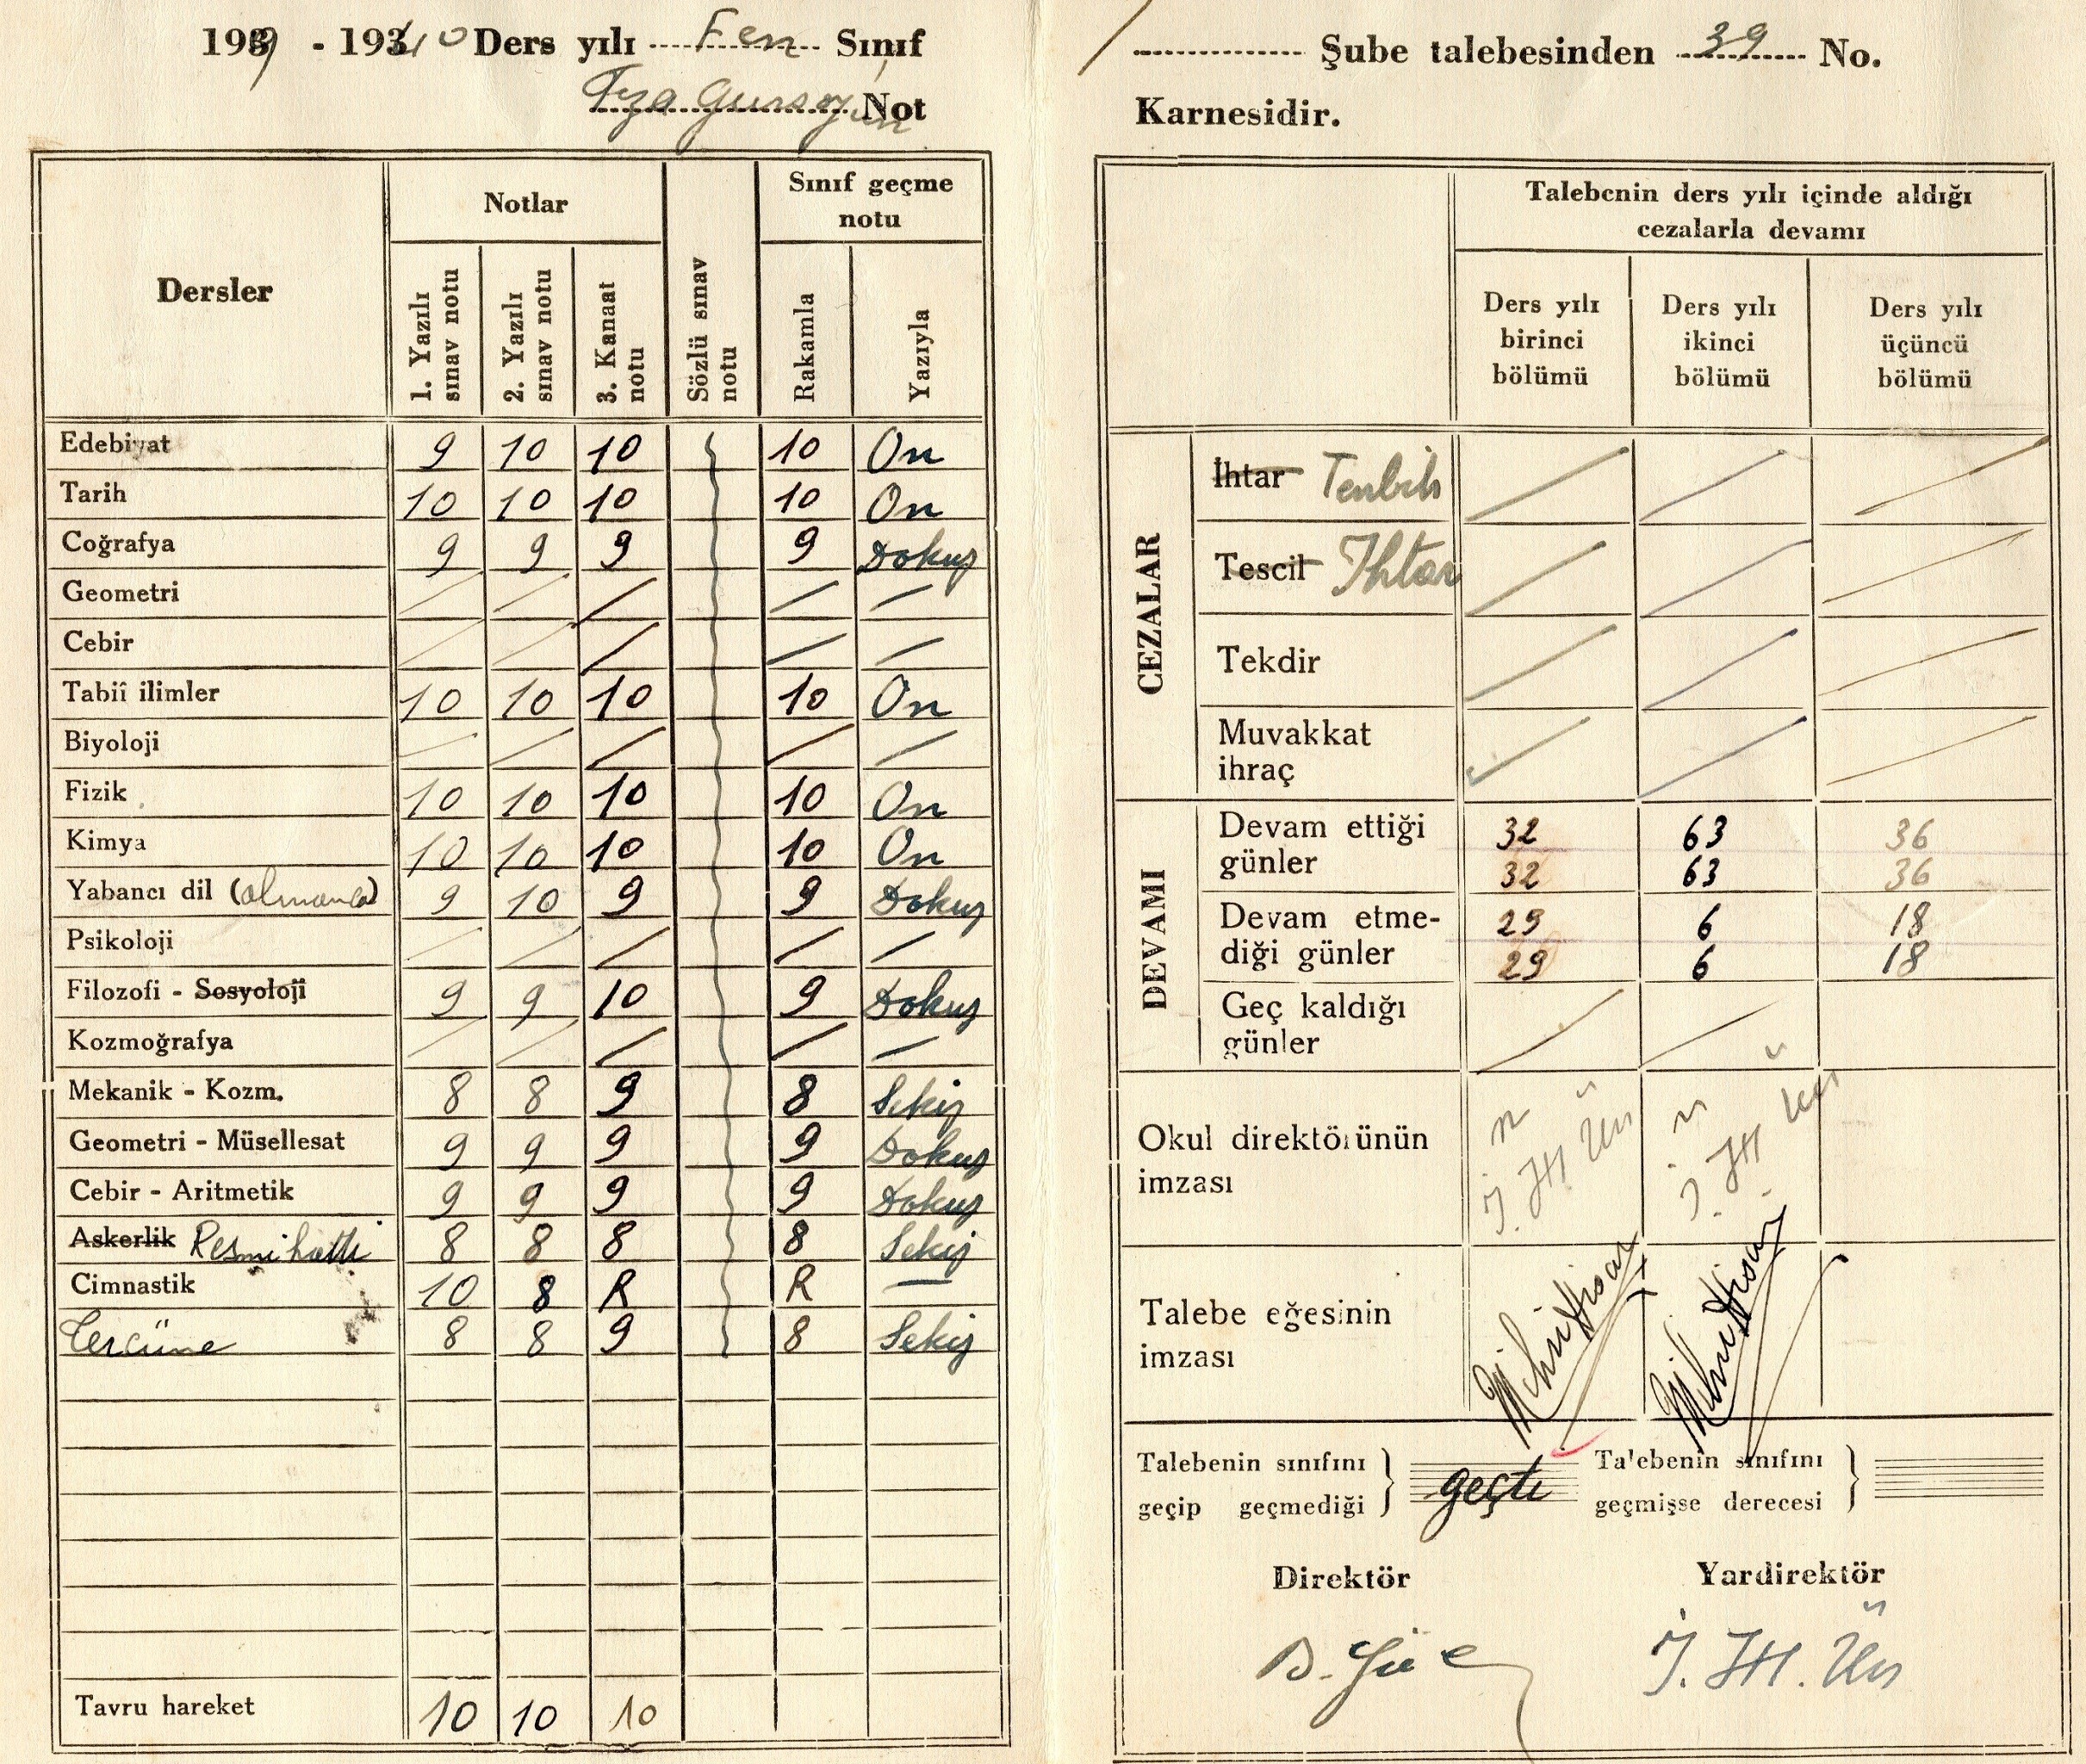 1939 - 1940 Ders yılı Fen Sınıf
Feza Gürsoyun Not
Dersler
Notlar
Sınıf geçme notu
1. Yazılı sınav notu
2. Yazılı sınav notu
3. Kanaat notu
Sözlü sınav notu
Rakamla
Yazıyla
Edebiyat 9 10 10 10 On
Tarih 10 10 10 10 On
Coğrafya 9 9 9 9 Dokuz
Geometri
Cebir
Tabiî ilimler 10 10 10 10 On
Biyoloji
Fizik 10 10 10 10 On
Kimya 10 10 10 10 On
Yabancı dil (almanca) 9 10 9 9 Dokuz
Psikoloji
Filozofi - Sosyoloji 9 9 10 9 Dokuz
Kozmoğrafya
Mekanik - Kozm. 8 8 9 8 Sekiz
Geometri - Müsellesat 9 9 9 9 Dokuz
Cebir - Aritmetik 9 9 9 9 Dokuz
Askerlik Resmi hatti 8 8 8 8 Sekiz
Cimnastik 10 8 R R
Tercüme 8 8 9 8 Sekiz
Tavru hareket 10 10 10
Şube talebesinden 39 No.
Karnesidir.
Talebenin ders yılı içinde aldığı
cezalarla devamı
Ders yılı birinci bölümü
Ders yılı ikinci bölümü
Ders yılı üçüncü bölümü
CEZALAR
İhtar Tenbih
Tescil Ihtar
Tekdir
Muvakkat
ihraç
DEVAMI
Devam ettiği 32 63 36
günler 32 63 36
Devam etme- 29 6 18
diği günler 29 6 18
Geç kaldığı
günler
Okul direktörünün
imzası
Talebe eğesinin
imzası
Talebenin sınıfını
geçip geçmediği
geçti
Talebenin sınıfını
geçmişse derecesi
Direktör Yardirektör
İ. H. Ün